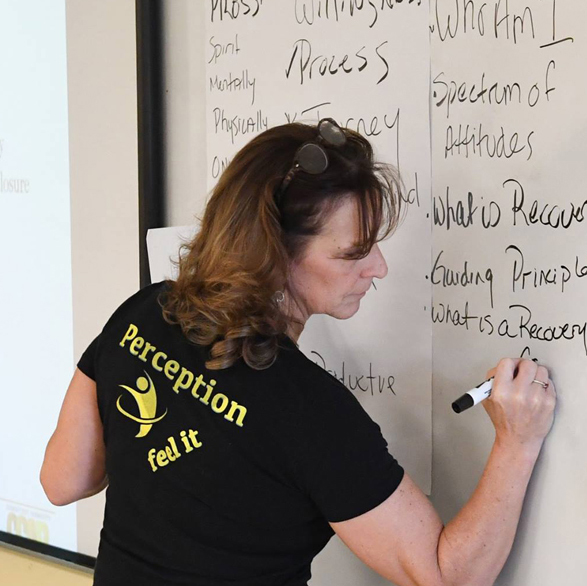 Willingness
Spirit
Mentally
Physically
Process
Journey
Who Am I
Spectrum of
Attitudes
What is Recover
Guiding Principle
What is a Recovery
losure
Perception
feel it